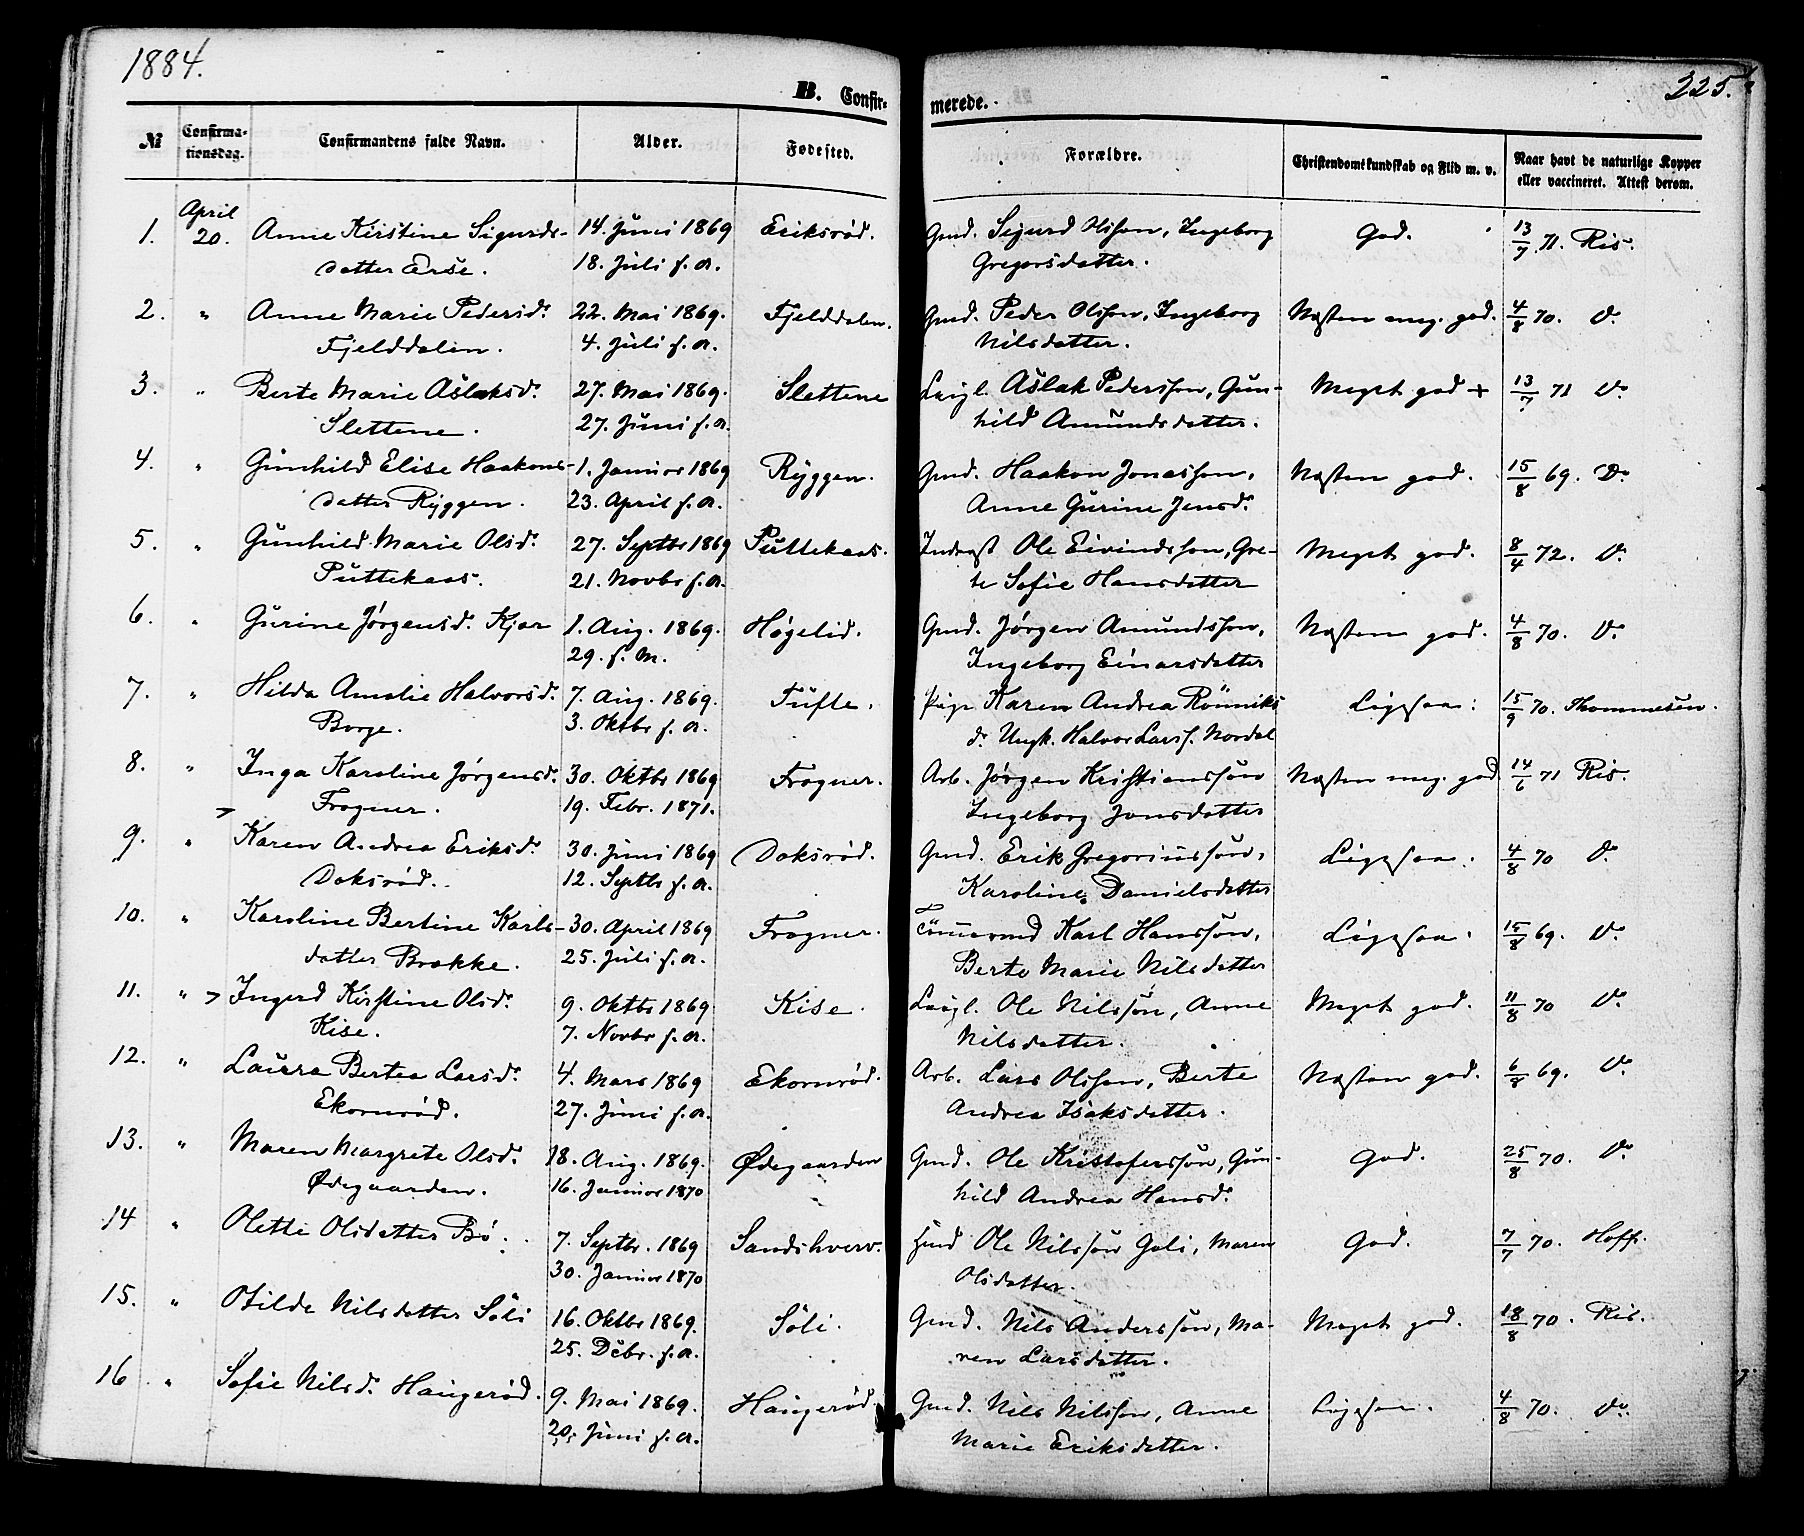 1884.
225.
B. Confir-
merede.
№ Confirma-tionsdag. Confirmandens fulde Navn. Alder. Fødested. Forældre. Christendomskundskab og Flid m. v. Naar havt de naturlige Kopper eller vaccineret. Attest derom.
1. April 20. Anne Kirstine Sigurds- 14. Juni 1869 Eriksrød. Gmd. Sigurd Olsson, Ingeborg God. 13/7 71. Ris.
datter Erse. 18. Juli s. A. Gregersdatter.
2. " Anne Marie Pedersd. 22. Mai 1869. Fjelddalen. Gmd. Peder Olsson, Ingeborg Næsten meg. god. 4/8 70. Do
Fjelddalen. 4. Juli s. A. Nilsdatter.
3. " Berte Marie Aslaksd. 27. Mai 1869. Slettene Leigl. Aslak Pedersson, Gun- Meget god + 13/7 71 Do
Slettene. 27. Juni s. A. hild Amundsdatter.
4. " Gunhild Elise Haakons- 1. Januar 1869 Ryggen. Gmd. Haakon Jonasson, Næsten god. 15/8 69. Do
datter Ryggen. 23. April s. A. Anne Gurine Jensd.
5. " Gunhild Marie Olsd. 27. Septbr 1869 Puttekaas. Inderst Ole Eivindsson, Gre- Meget god. 8/4 72. Do
Puttekaas. 21. Novbr s. A. te Sofie Hansdatter
6. " Gurine Jørgensd. Kjær 1. Aug. 1869. Høgelid. Gmd. Jørgen Amundsson, Næsten god. 4/8 70. Do
29. s. M. Ingeborg Einarsdatter
7. " Hilda Amalie Halvorsd. 7. Aug. 1869. Tufte. Pige Karen Andrea Rönniks Ligesaa. 15/9 70. Thommesen.
Borge. 3. Oktbr s. A. d. Ungk. Halvor Larss. Nordal
8. " Inga Karoline Jørgensd. 30. Oktbr 1869 Frogner. Arb. Jørgen Kristiansson Næsten meg. god 14/6 71 Ris.
Frogner. 19. Febr. 1871. Ingeborg Jonsdatter
9. " Karen Andrea Eriksd. 30. Juni 1869 Doksrød. Gmd. Erik Gregoriusson, Ligesaa. 4/8 70 Do
Doksrød. 12. Septbr s. A. Karoline Danielsdatter
10. " Karoline Bertine Karls- 30. April 1869 Frogner. Tömmermd Karl Hansson, Ligesaa. 15/8 69. Do
datter Brække. 25. Juli s. A. Berte Marie Nilsdatter
11. " Ingerd Kirstine Olsd. 9. Oktbr 1869 Kise. Leigl. Ole Nilsson, Anne Meget god. 11/8 70 Do
Kise. 7. Novbr s. A. Nilsdatter.
12. " Laura Bertea Larsd. 4. Mars 1869 Ekornrød. Arb. Lars Olsson, Berte Næsten god. 6/8 69. Do
Ekornrød. 27. Juni s. A. Andrea Isaksdatter.
13. " Maren Margrete Olsd. 18. Aug. 1869. Ødegaarden Gmd. Ole Kristoferssön, Gun- God. 25/8 70. Do
Ødegaarden. 16. Januar 1870 hild Andrea Hansd.
14 " Olette Olsdatter Bø. 7. Septbr. 1869 Sandshverv. Hmd Ole Nilssön Goli, Maren God. 7/7 70. Hoff.
30. Januar 1870 Olsdatter.
15. " Otilde Nilsdatter Söli 16. Oktbr 1869. Söli. Gmd. Nils Anderssön, Ma- Meget god. 18/8 70. Ris.
25. Debr. s. A. ren Larsdatter.
16. " Sofie Nilsd. Haugerød. 9. Mai 1869. Haugerød. Gmd. Nils Nilsson, Anne Ligesaa. 4/8 70. Do
20. Juni s. A. Marie Eriksdatter.